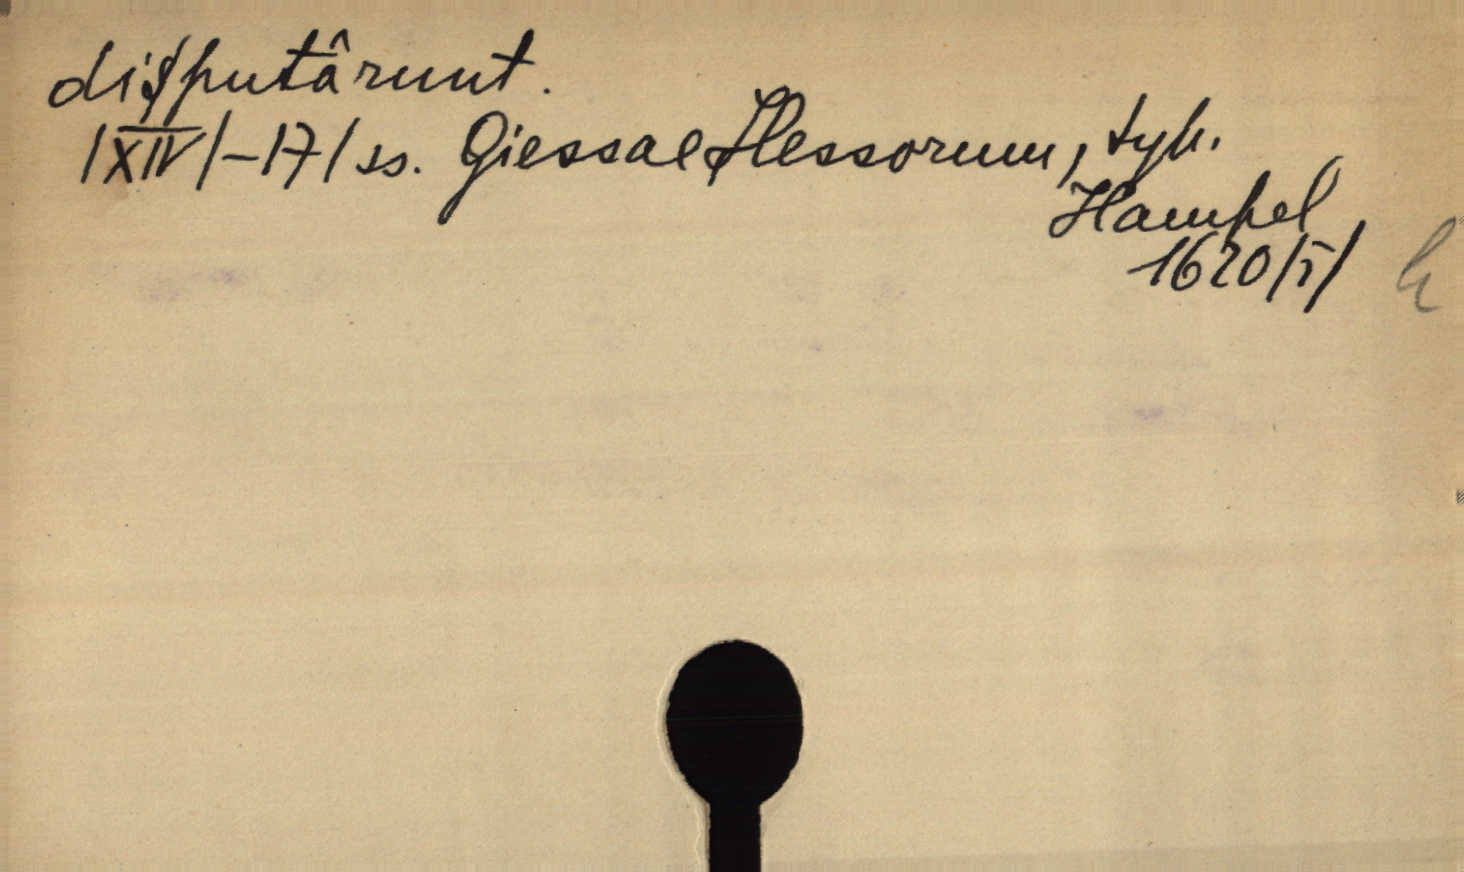 disputârunt.
|XIV|-17/ ss. Giessae Hessorum, typ.
Hampel
1620/5/ h